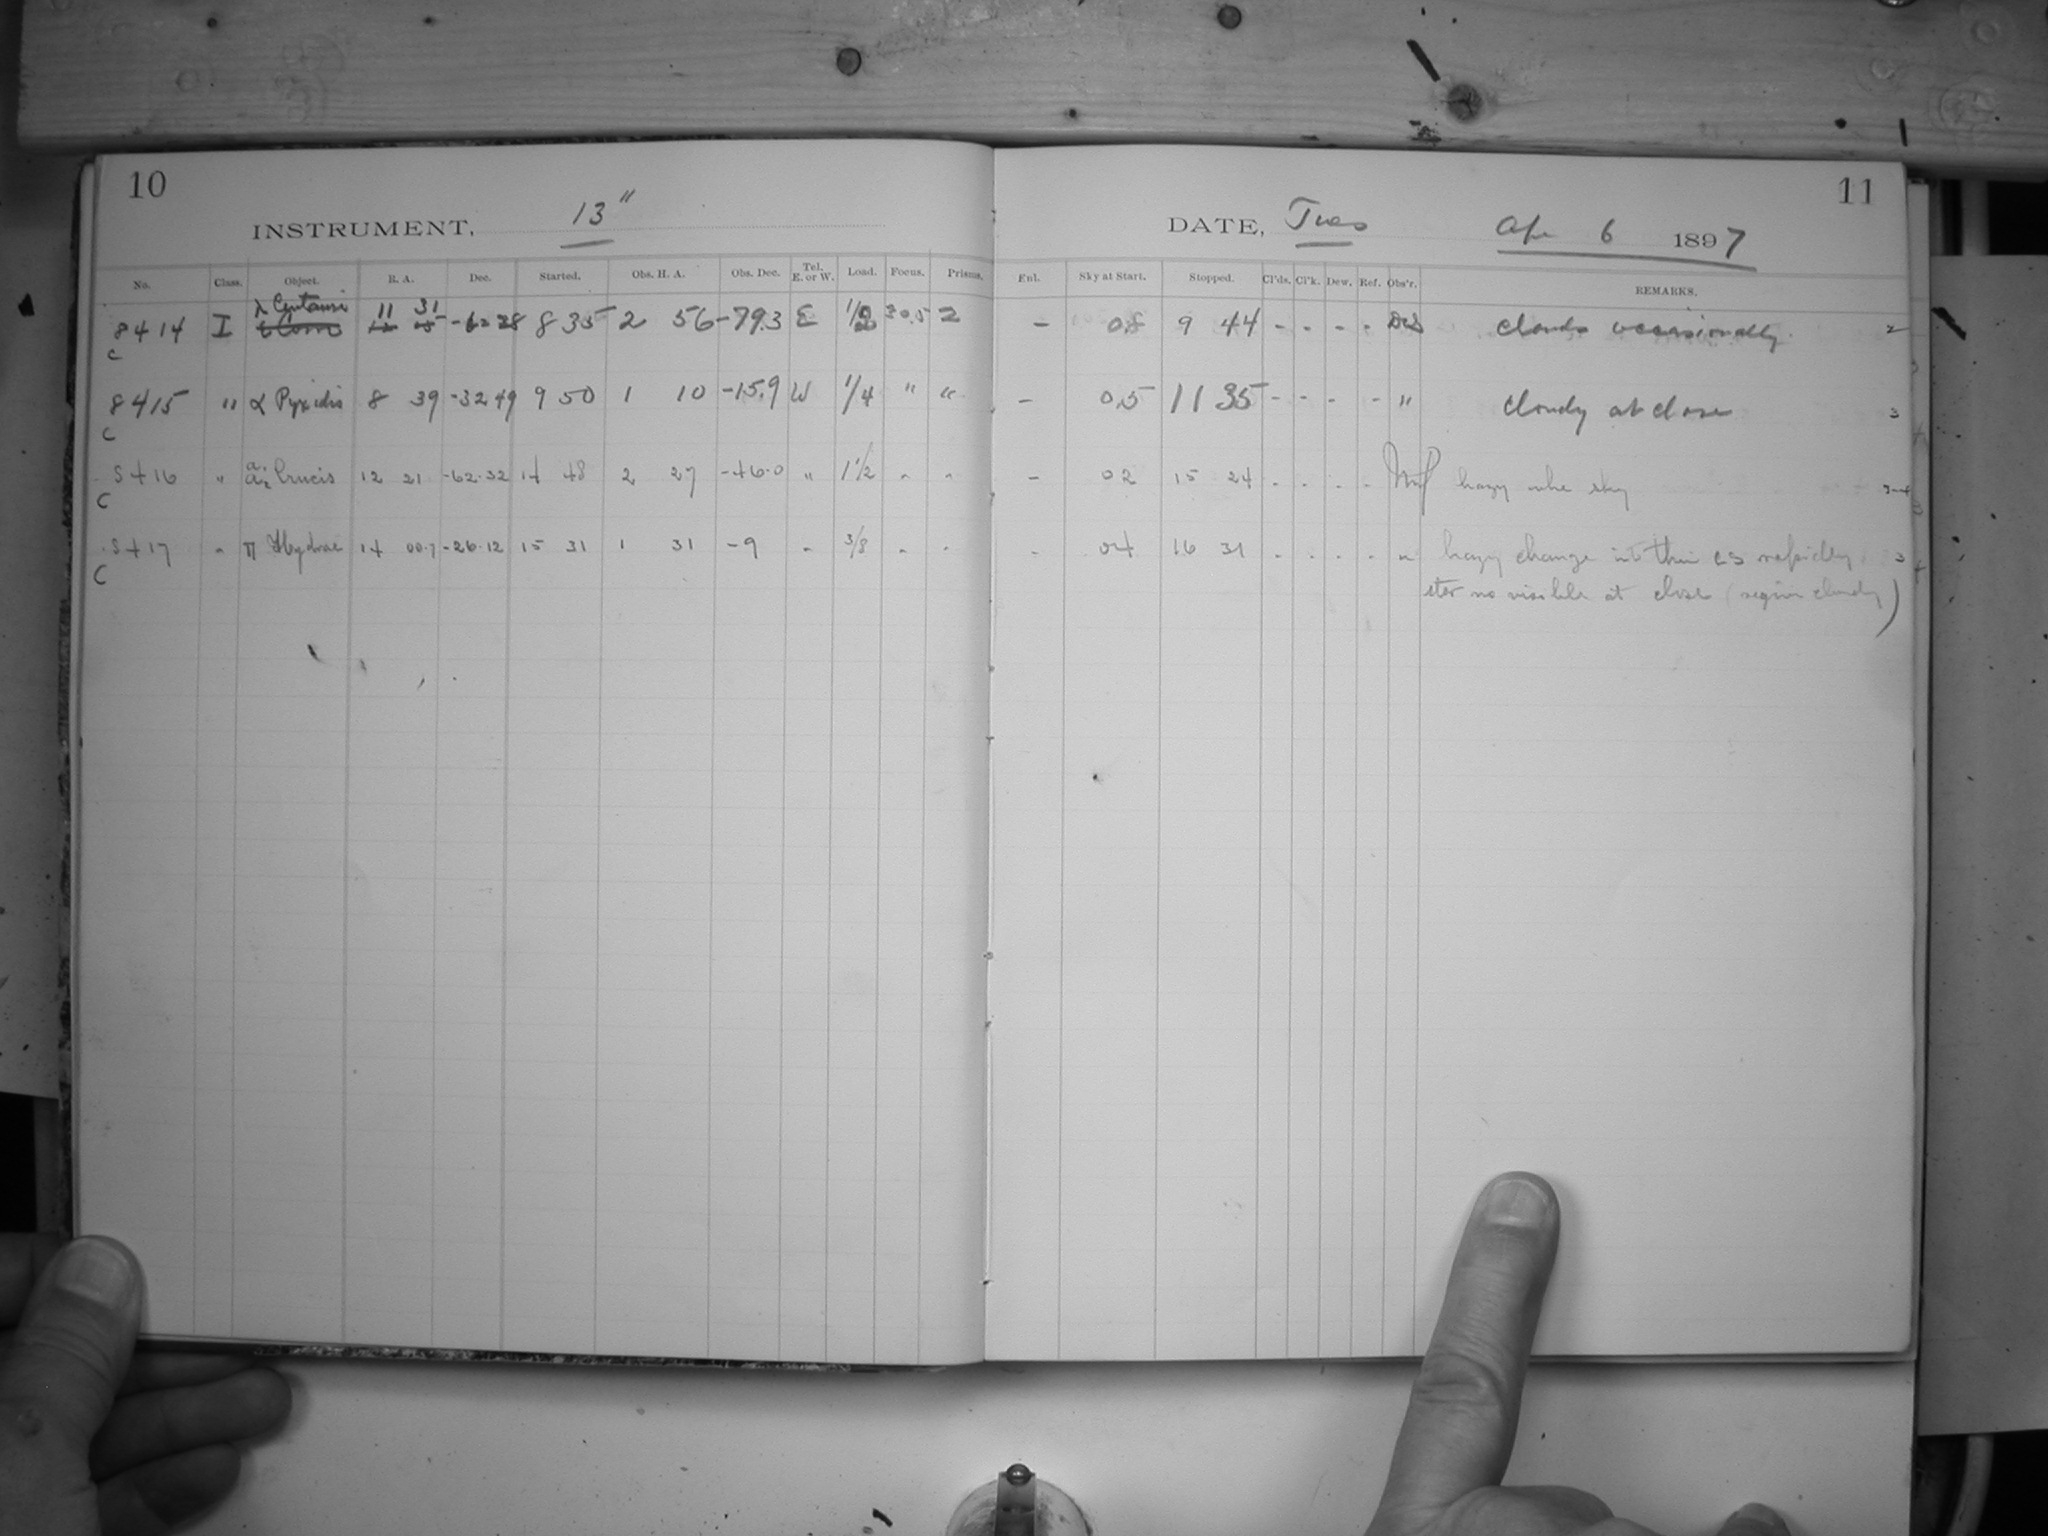 10
INSTRUMENT, 13"
No. Class. Object. R. A. Dec. Started. Obs. H. A. Obs. Dec. Tel. E. or W. Load. Focus. Prisms.
λ Centauri 11 31
8414 I -62 28 8 35 2 56 -79.3 E 1/2 30.5 2
C
8415 " α Pyxidis 8 39 -32 49 9 50 1 10 -15.9 W 1/4 " "
C
8416 " α1 α2 Crucis 12 21 -62.32 14 48 2 27 -46.0 " 1 1/2 " "
C
8417 " π Hydrae 14 00.7 -26.12 15 31 1 31 -9 " 3/8 " "
C
11
DATE, Tues Apr 6 1897
Enl. Sky at Start. Stopped. Cl'ds. Cl'k. Dew. Ref. Obs'r. REMARKS.
- 0.8 9 44 - - - - clouds occasionally. 2
- 0.5 11 35 - - - - " cloudy at close 3
- 02 15 24 - - - - hazy sky
- 04 16 31 - - - - " hazy change into thin cs rapidly 3
star no visible at close (region cloudy)